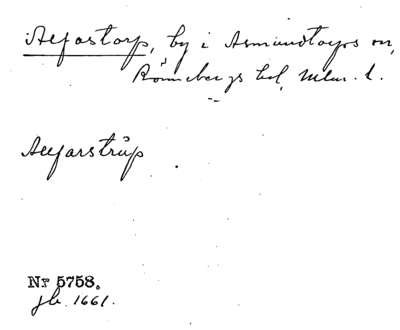 Alfastorp, by i Asmundtorps sn,
Rönnebergs hd, Mlm. l.
Allfarstrup
Nr 5758.
jb. 1661.